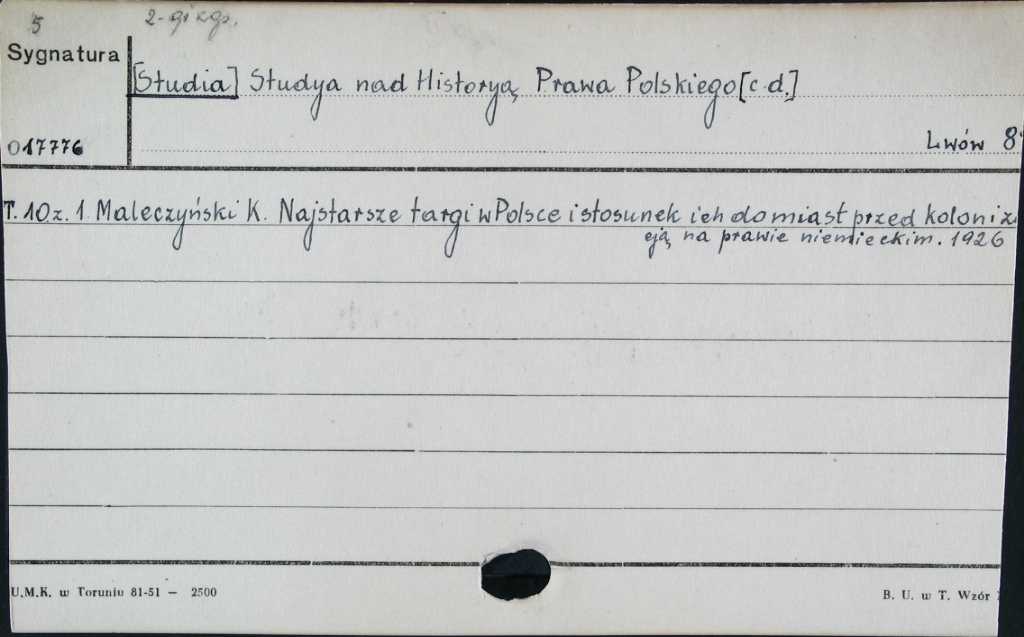 5 2-gi egz.
Sygnatura
[Studia] Studya nad Historyą Prawa Polskiego [c.d.]
017776 Lwów 8°
T. 10 z. 1 Maleczyński K. Najstarsze targi w Polsce i stosunek ich do miast przed koloniz
cją na prawie niemieckim. 1926
U.M.K. w Toruniu 81-51 — 2500 B. U. w T. Wzór